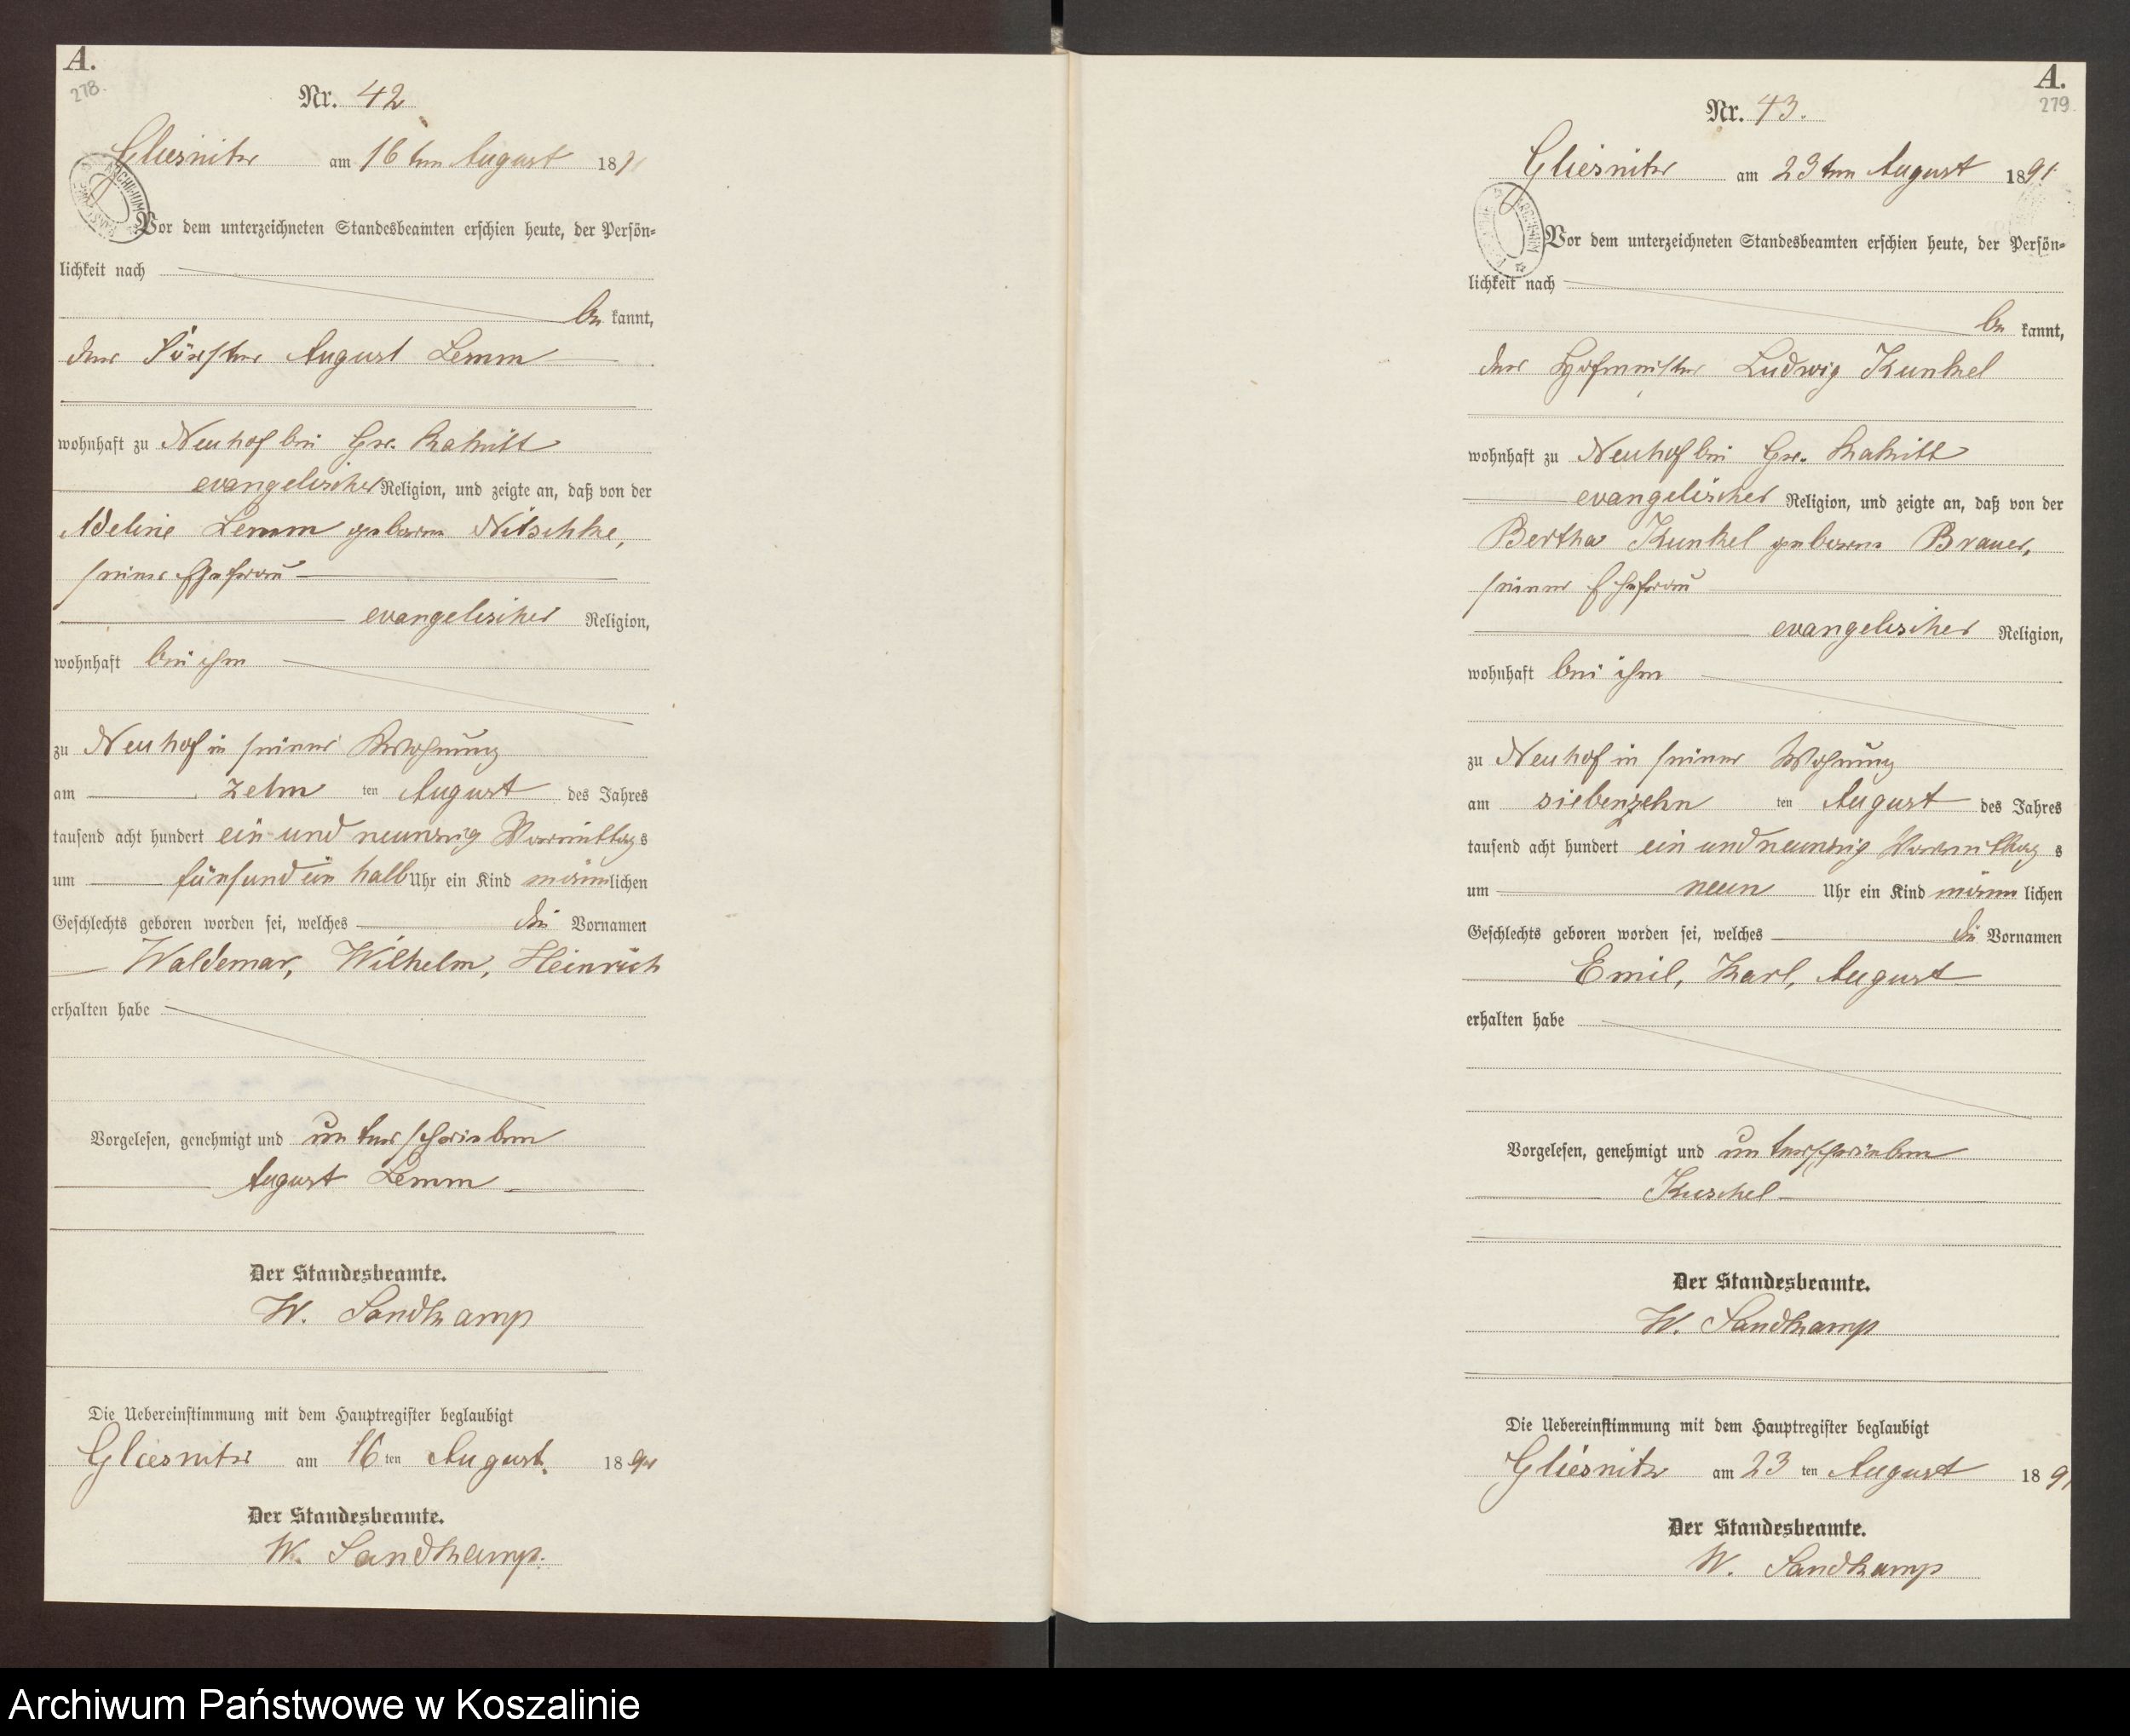 A.
278.
Nr. 42
Gliesnitz am 16ten August 1891
Vor dem unterzeichneten Standesbeamten erschien heute, der Persön-
lichkeit nach
be kannt,
der Förster August Lemm
wohnhaft zu Neuhof bei Gr. Rakitt
evangelischer Religion, und zeigte an, daß von der
Adeline Lemm geborne Nitschke,
seiner Ehefrau
evangelischer Religion,
wohnhaft bei ihm
zu Neuhof in seiner Wohnung
am zehn ten August des Jahres
tausend acht hundert ein und neunzig Vormittags
um fünf und ein halb Uhr ein Kind männlichen
Geschlechts geboren worden sei, welches die Vornamen
Waldemar, Wilhelm, Heinrich
erhalten habe
Vorgelesen, genehmigt und unterschrieben
August Lemm
Der Standesbeamte.
W. Sandkamp
Die Uebereinstimmung mit dem Hauptregister beglaubigt
Gliesnitz am 16 ten August. 1891
Der Standesbeamte.
W. Sandkamp.
A.
279.
Nr. 43.
Gliesnitz am 23ten August 1891
Vor dem unterzeichneten Standesbeamten erschien heute, der Persön-
lichkeit nach
be kannt,
der Hofmeister Ludwig Kunkel
wohnhaft zu Neuhof bei Gr. Rakitt
evangelischer Religion, und zeigte an, daß von der
Bertha Kunkel geborne Brauer,
seiner Ehefrau
evangelischer Religion,
wohnhaft bei ihm
zu Neuhof in seiner Wohnung
am siebenzehn ten August des Jahres
tausend acht hundert ein und neunzig Vormittag s
um neun Uhr ein Kind männ lichen
Geschlechts geboren worden sei, welches die Vornamen
Emil, Karl, August
erhalten habe
Vorgelesen, genehmigt und unterschrieben
Kuschel
Der Standesbeamte.
W. Sandkamp
Die Uebereinstimmung mit dem Hauptregister beglaubigt
Gliesnitz am 23 ten August 1891
Der Standesbeamte.
W. Sandkamp
Archiwum Państwowe w Koszalinie